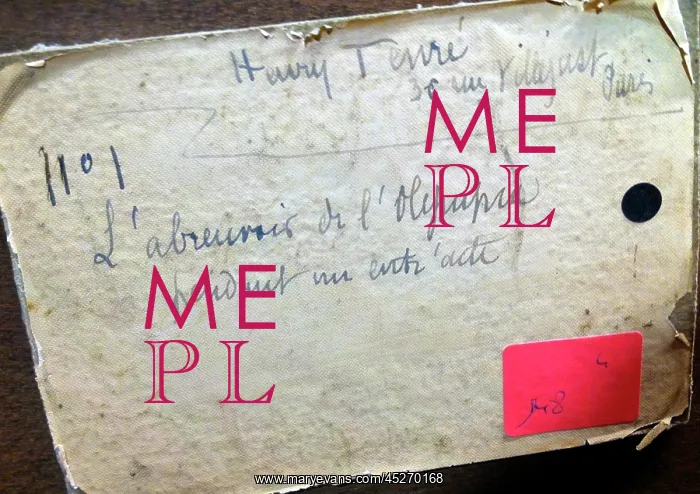 Henry Tenré
36 rue Villejust
Paris
No 1
L'abreuvoir de l'Olympia
pendant un entr'acte
ME
PL
ME
PL
www.maryevans.com/45270168